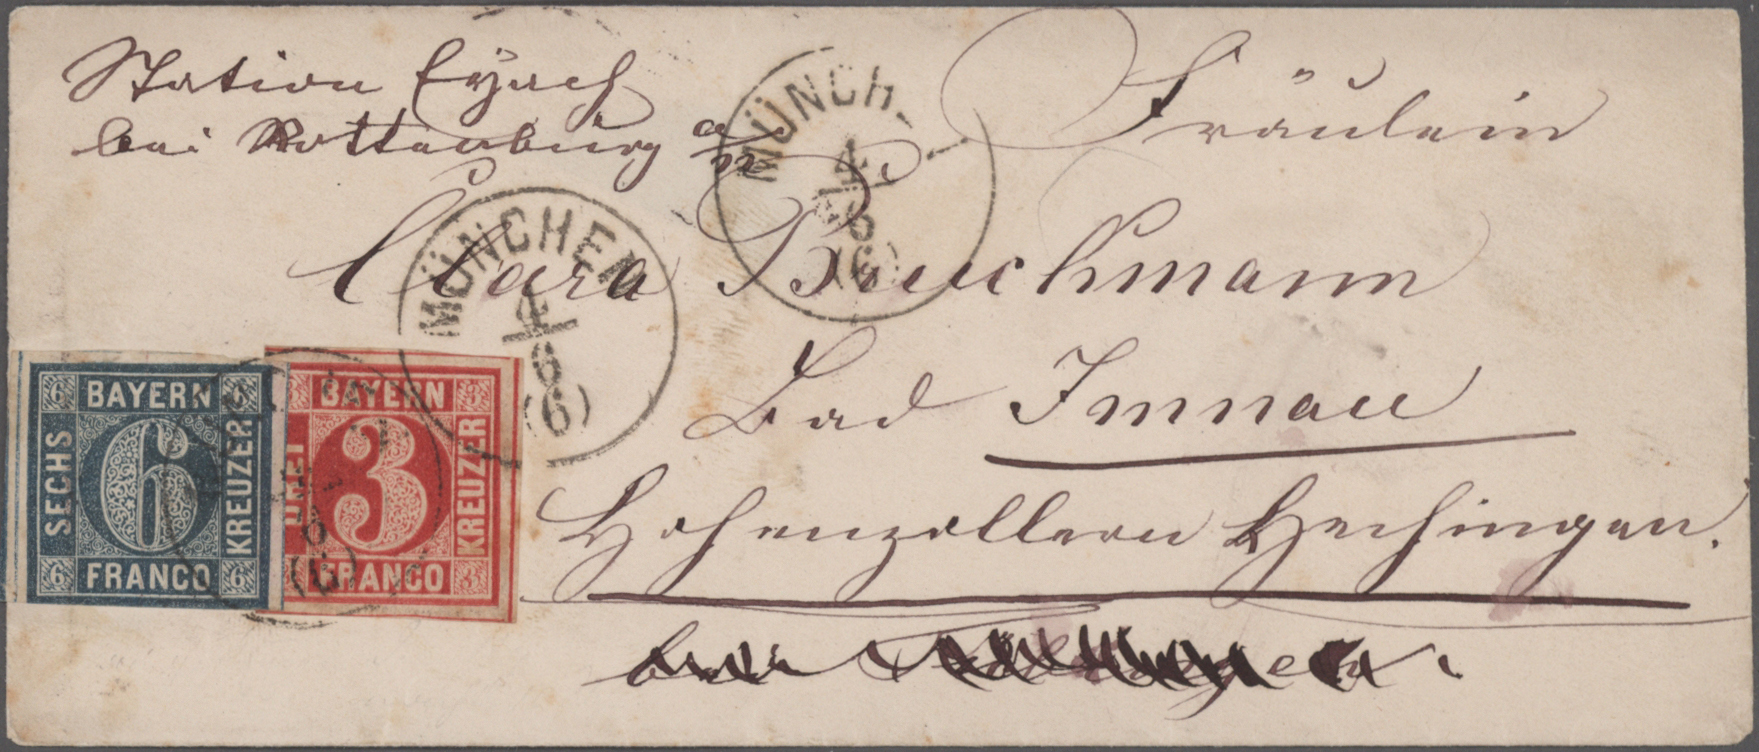 Station Eyach
bei Rottenburg a/N
Fräulein
Clara Bruckmann
Bad Imnau
Hohenzollern Hechingen.
bei
MÜNCHEN
4
6
(6)
MÜNCH
4
6
(6)
6 BAYERN 6
SECHS
6
KREUZER
6 FRANCO 6
BAYERN 3
DREI
3
KREUZER
FRANCO 3
(6)